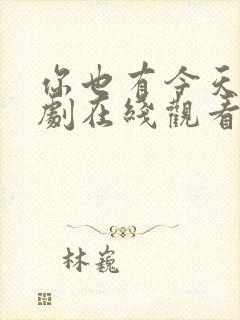 你也有今天
劇在綫觀看
林巍